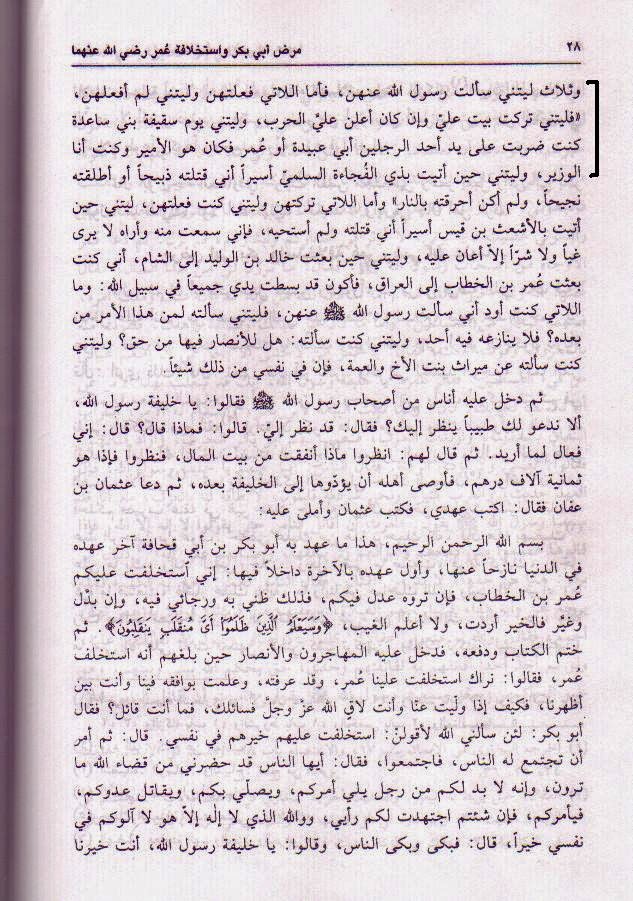 ٢٨
مرض أبي بكر واستخلافة عُمر رضي الله عنهما
وثلاث ليتني سألت رسول الله عنهن، فأما اللاتي فعلتهن وليتني لم أفعلهن،
«فليتني تركت بيت عليّ وإن كان أعلن عليَّ الحرب، وليتني يوم سقيفة بني ساعدة
كنت ضربت على يد أحد الرجلين أبي عبيدة أو عُمر فكان هو الأمير وكنت أنا
الوزير، وليتني حين أتيت بذي الفُجاءة السلميّ أسيراً أني قتلته ذبيحاً أو أطلقته
نجيحاً، ولم أكن أحرقته بالنار» وأما اللاتي تركتهن وليتني كنت فعلتهن، ليتني حين
أتيت بالأشعث بن قيس أسيراً أني قتلته ولم أستحيه، فإني سمعت منه وأراه لا يرى
غياً ولا شرّاً إلاّ أعان عليه، وليتني حين بعثت خالد بن الوليد إلى الشام، أني كنت
بعثت عُمر بن الخطاب إلى العراق، فأكون قد بسطت يدي جميعاً في سبيل الله: وما
اللاتي كنت أود أني سألت رسول الله ﷺ عنهن، فليتني سألته لمن هذا الأمر من
بعده؟ فلا ينازعه فيه أحد، وليتني كنت سألته: هل للأنصار فيها من حق؟ وليتني
كنت سألته عن ميراث بنت الأخ والعمة، فإن في نفسي من ذلك شيئاً.
ثم دخل عليه أناس من أصحاب رسول الله ﷺ فقالوا: يا خليفة رسول الله،
ألا ندعو لك طبيباً ينظر إليك؟ فقال: قد نظر إليّ. قالوا: فماذا قال؟ قال: إني
فعال لما أريد. ثم قال لهم: انظروا ماذا أنفقت من بيت المال، فنظروا فإذا هو
ثمانية آلاف درهم، فأوصى أهله أن يؤدّوها إلى الخليفة بعده، ثم دعا عثمان بن
عفان فقال: اكتب عهدي، فكتب عثمان وأملى عليه:
بسم الله الرحمن الرحيم، هذا ما عهد به أبو بكر بن أبي قحافة آخر عهده
في الدنيا نازحاً عنها، وأول عهده بالآخرة داخلاً فيها: إني ٱستخلفت عليكم
عُمر بن الخطاب، فإن تروه عدل فيكم، فذلك ظني به ورجائي فيه، وإن بدّل
وغيَّر فالخير أردت، ولا أعلم الغيب، ﴿وَسَيَعْلَمُ ٱلَّذِينَ ظَلَمُوٓا۟ أَىَّ مُنقَلَبٍ يَنقَلِبُونَ﴾. ثم
ختم الكتاب ودفعه، فدخل عليه المهاجرون والأنصار حين بلغهم أنه استخلف
عُمر، فقالوا: نراك استخلفت علينا عُمر، وقد عرفته، وعلمت بوافقه فينا وأنت بين
أظهرنا، فكيف إذا ولّيت عنّا وأنت لاقٍ الله عزّ وجلَّ فسائلك، فما أنت قائل؟ فقال
أبو بكر: لئن سألني الله لأقولنّ: استخلفت عليهم خيرهم في نفسي. قال: ثم أمر
أن تجتمع له الناس، فاجتمعوا، فقال: أيها الناس قد حضرني من قضاء الله ما
ترون، وإنه لا بد لكم من رجل يلي أمركم، ويصلّي بكم، ويقاتل عدوكم،
فيأمركم، فإن شئتم اجتهدت لكم رأيي، ووالله الذي لا إلٰه إلاّ هو لا آلوكم في
نفسي خيراً، قال: فبكى وبكى الناس، وقالوا: يا خليفة رسول الله، أنت خيرنا